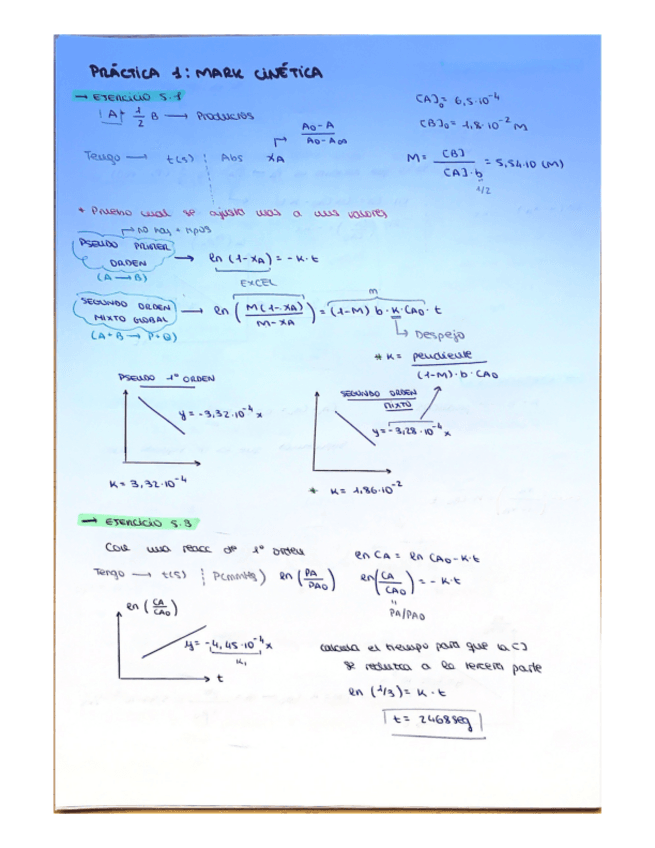 PRÁCTICA 1: MARK CINÉTICA
→ EJERCICIO 5.1
|A| + 1/2 B → Productos
[A]₀ = 6,5·10⁻⁴
[B]₀ = 1,8·10⁻² M
M = [B]/[A]·b = 5,54·10 (M)
1/2
A₀-A/A₀-A∞
Tengo → t(s) Abs XA
* Pruebo cual se ajusta mas a mis valores
→ no hay + tipos
PSEUDO PRIMER ORDEN → ln (1-XA) = -K·t
(A → B)
EXCEL
SEGUNDO ORDEN MIXTO GLOBAL → ln (M(1-XA)/M-XA) = (1-M) b·K·CA₀·t
m
(A+B → P+Q)
↳ Despejo
* K = pendiente/(1-M)·b·CA₀
PSEUDO 1º ORDEN
y = -3,32·10⁻⁴ x
K = 3,32·10⁻⁴
SEGUNDO ORDEN MIXTO
y = -3,28·10⁻⁴ x
* K = 1,86·10⁻²
→ EJERCICIO 5.3
Con una reacc de 1º orden
ln CA = ln CA₀ - K·t
Tengo → t(s) P(mmHg) ln (PA/PA₀)
ln (CA/CA₀) = -K·t
"
PA/PA₀
ln (CA/CA₀)
y = -4,45·10⁻⁴ x
K₁
t
calcula el tiempo para que la C]
se reduzca a la tercera parte
ln (1/3) = K·t
t = 2468 seg